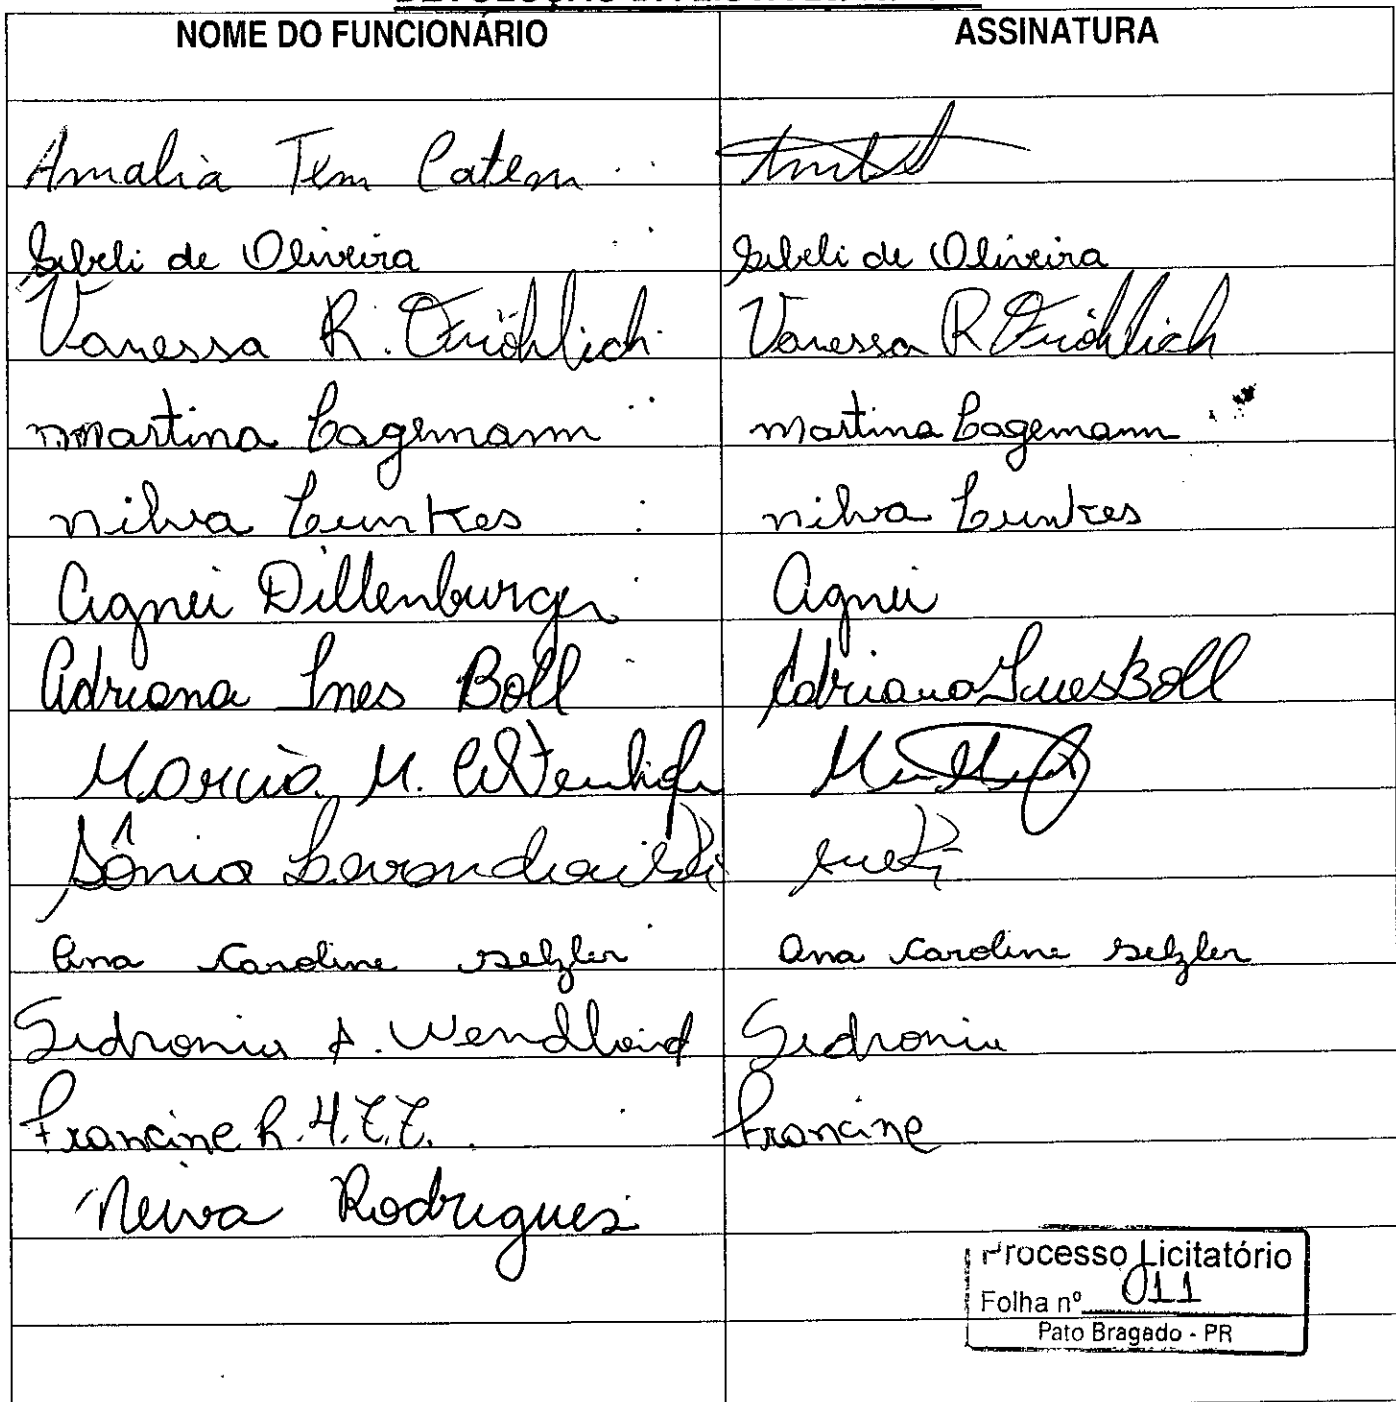 NOME DO FUNCIONÁRIO ASSINATURA
Amalia Tem Caten
Sibeli de Oliveira Sibeli de Oliveira
Vanessa R. Fröhlich Vanessa R Fröhlich
martina Cagemann martina Cagemann
nilva Lunkes nilva Lunkes
Agnei Dillenburger Agnei
Adriana Ines Boll Adriana Ines Boll
Marcia M.
Sônia
Ana Caroline selzler Ana Caroline selzler
Sidronia A. Wendland Sidronia
Francine R. H. Z. Z. Francine
Neiva Rodrigues
Processo Licitatório
Folha nº 011
Pato Bragado - PR